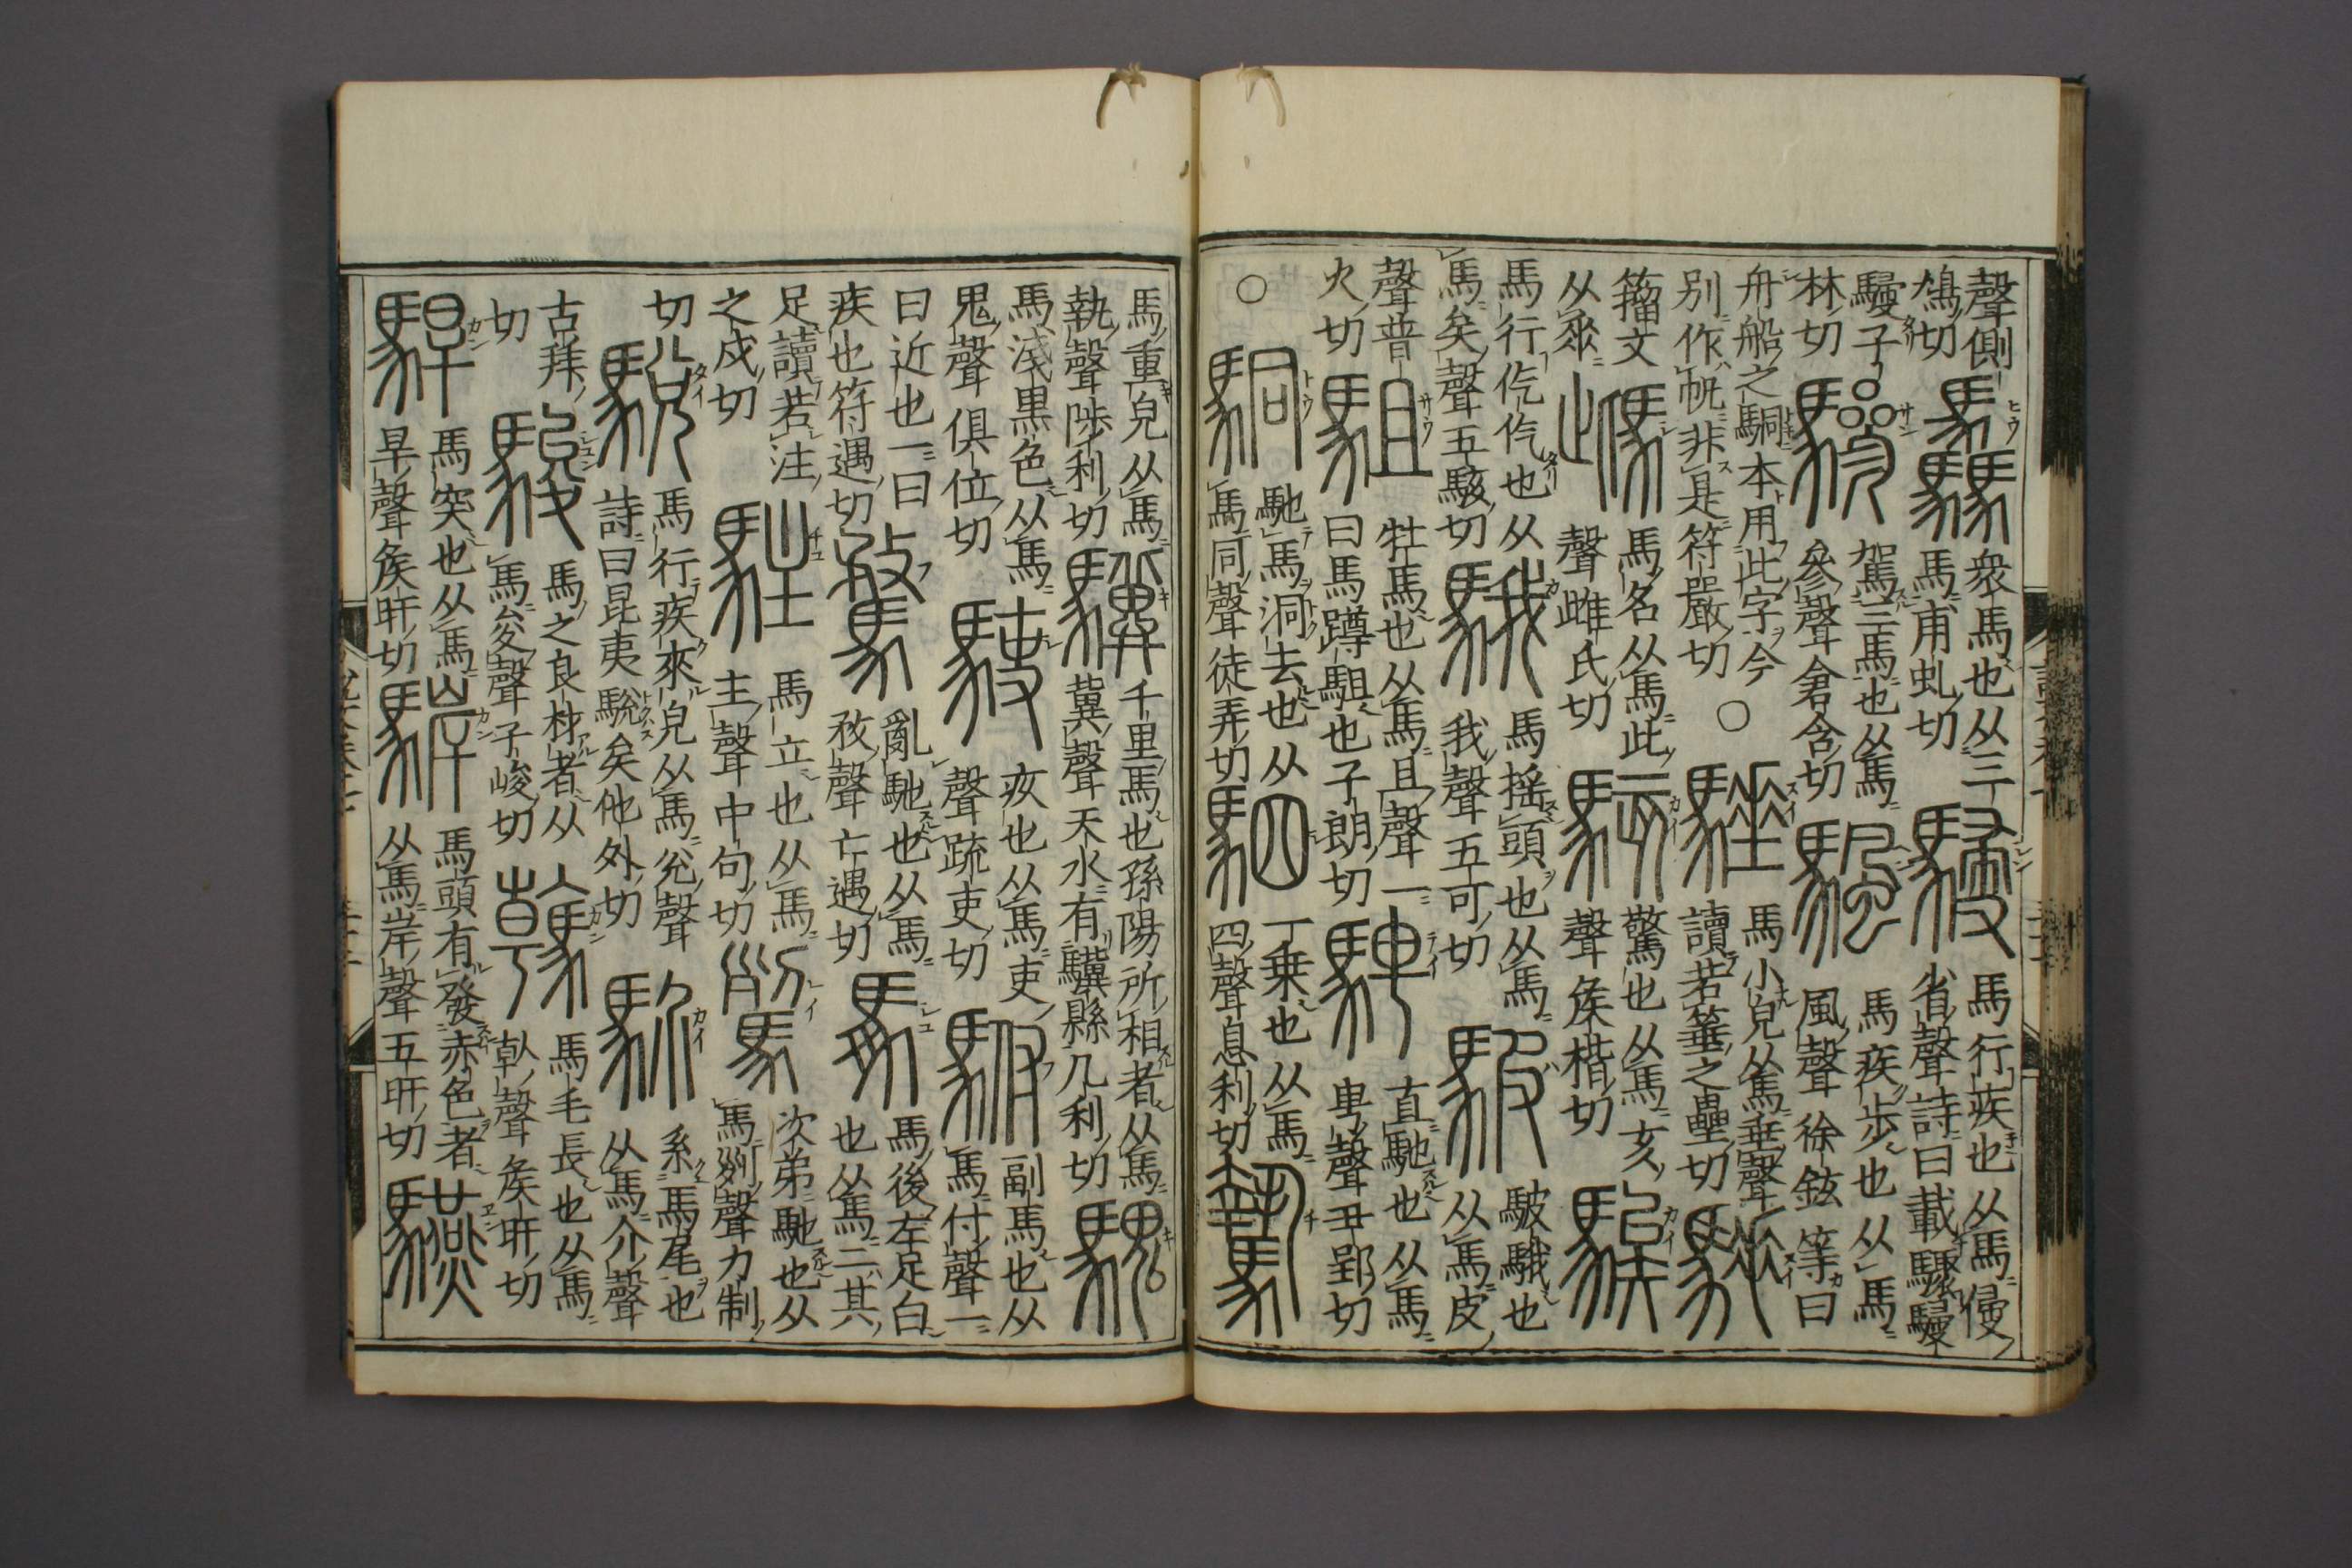 聲側
鳩切
驫
衆馬也从三
馬甫虬切
駸
馬行疾也从馬㑴
省聲詩曰載驟駸
駸子
林切
驂
駕三馬也从馬
參聲倉含切
颿
馬疾步也从馬
風聲徐鉉等曰
舟船之駧本用此字今
別作帆非是符嚴切
○
馬小皃从馬垂聲
讀若箠之壘切
籀文
从𠂹
馬名从馬此
聲雌氏切
駭
驚也从馬亥
聲矦楷切
騃
馬行仡仡也从
馬矣聲五駭切
騀
馬搖頭也从馬
我聲五可切
駊
駊騀也
从馬皮
聲普
火切
駔
牡馬也从馬且聲一
曰馬蹲駔也子朗切
騁
直馳也从馬
甹聲丑郢切
○
駧
馳馬洞去也从
馬同聲徒弄切
駟
一乗也从馬
四聲息利切
騺
馬重皃从馬
執聲陟利切
驥
千里馬也孫陽所相者从馬
冀聲天水有驥縣几利切
騩
馬淺黒色从馬
鬼聲俱位切
駛
疾也从馬吏
聲疏吏切
駙
副馬也从
馬付聲一
曰近也一曰
疾也符遇切
騖
亂馳也从馬
敄聲亡遇切
馵
馬後左足白
也从馬二其
足讀若注
之戍切
駐
馬立也从馬
主聲中句切
次弟馳也从
馬𠛱聲力制
切
駾
馬行疾來皃从馬兊聲
詩曰昆夷駾矣他外切
䯰
系馬尾也
从馬介聲
古拜
切
駿
馬之良材者从
馬夋聲子峻切
馬毛長也从馬
倝聲矦旰切
駻
馬突也从馬
旱聲矦旰切
馬頭有發赤色者
从馬岸聲五旰切
驠